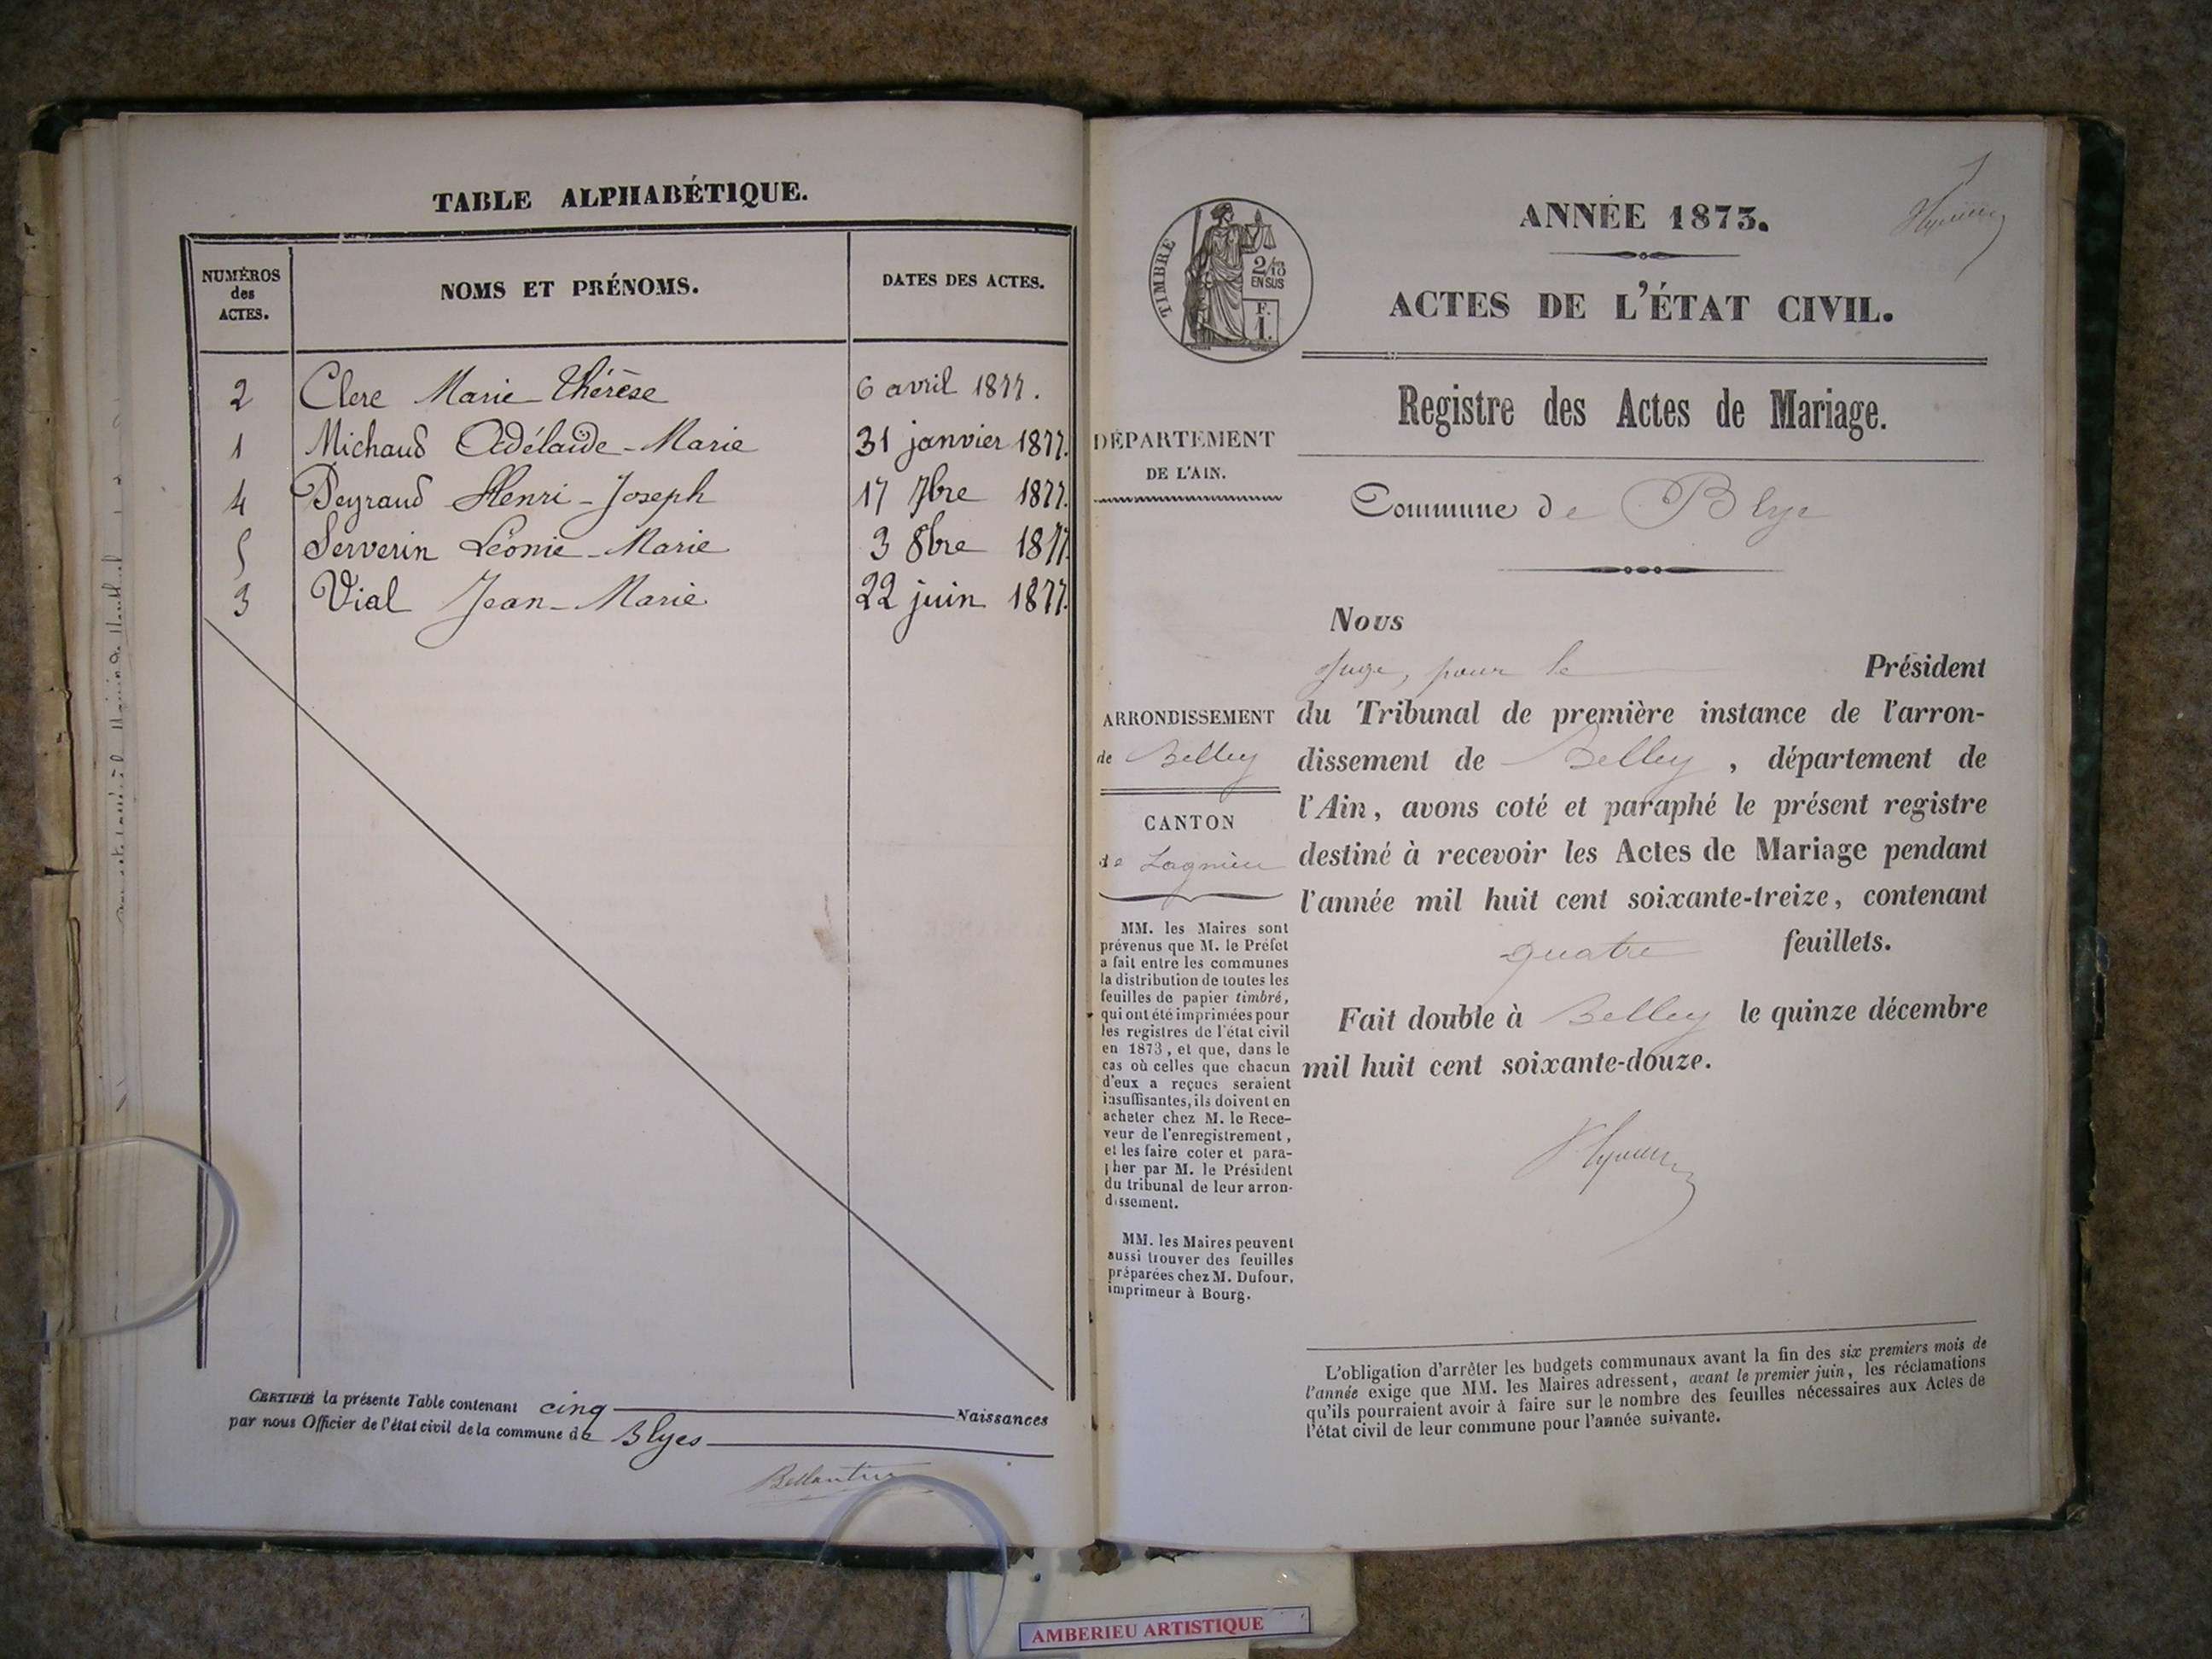 TABLE ALPHABÉTIQUE.
NUMÉROS
des
ACTES.
NOMS ET PRÉNOMS.
DATES DES ACTES.
2 Clere Marie-Thérèse 6 avril 1877.
1 Michaud Adélaïde-Marie 31 janvier 1877.
4 Peyraud Henri-Joseph 17 7bre 1877.
5 Serverin Léonie-Marie 3 8bre 1877.
3 Vial Jean-Marie 22 juin 1877.
CERTIFIÉ la présente Table contenant cinq Naissances
par nous Officier de l'état civil de la commune de Blyes
TIMBRE
2/10
EN SUS
F.
1.
ANNÉE 1873.
ACTES DE L'ÉTAT CIVIL.
Registre des Actes de Mariage.
DÉPARTEMENT
DE L'AIN.
Commune de Blye
ARRONDISSEMENT
de Belley
CANTON
de Lagnieu
MM. les Maires sont
prévenus que M. le Préfet
a fait entre les communes
la distribution de toutes les
feuilles de papier timbré,
qui ont été imprimées pour
les registres de l'état civil
en 1873, et que, dans le
cas où celles que chacun
d'eux a reçues seraient
insuffisantes, ils doivent en
acheter chez M. le Rece-
veur de l'enregistrement,
et les faire coter et para-
pher par M. le Président
du tribunal de leur arron-
dissement.
MM. les Maires peuvent
aussi trouver des feuilles
préparées chez M. Dufour,
imprimeur à Bourg.
Nous
Juge, pour le Président
du Tribunal de première instance de l'arron-
dissement de Belley, département de
l'Ain, avons coté et paraphé le présent registre
destiné à recevoir les Actes de Mariage pendant
l'année mil huit cent soixante-treize, contenant
quatre feuillets.
Fait double à Belley le quinze décembre
mil huit cent soixante-douze.
L'obligation d'arrêter les budgets communaux avant la fin des six premiers mois de
l'année exige que MM. les Maires adressent, avant le premier juin, les réclamations
qu'ils pourraient avoir à faire sur le nombre des feuilles nécessaires aux Actes de
l'état civil de leur commune pour l'année suivante.
AMBERIEU ARTISTIQUE